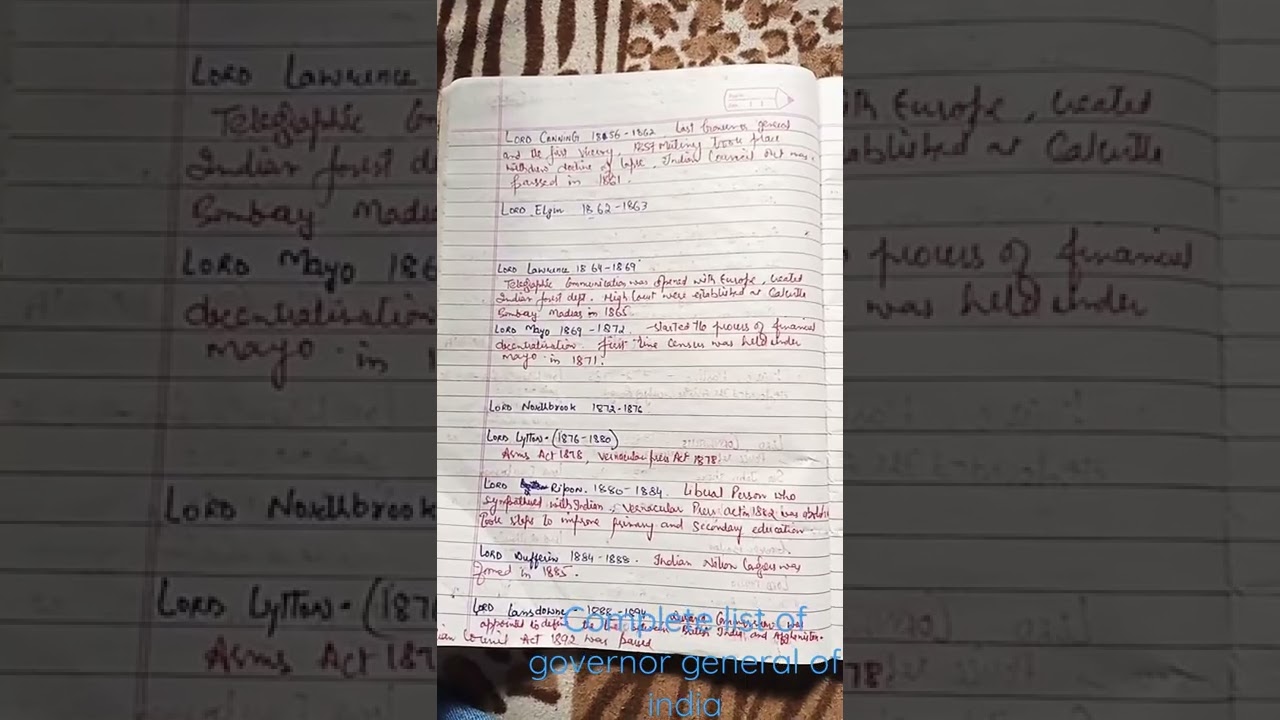 LORD CANNING 1856-1862. Last Governer general
and the first viceroy, 1857 Mutiny took place
withdrew doctine of lapse. Indian Council act was
passed in 1861.
LORD Elgin 1862-1863
LORD Lawrence 1864-1869
Telegraphic Communication was opened with Europe, created
Indian forest dept. High Court were established at Calcutta
Bombay Madras in 1865
LORD MAYO 1869-1872. started the process of financial
decentralisation. first time Census was held under
mayo in 1871.
LORD Northbrook 1872-1876
LORD Lytton-(1876-1880)
Arms Act 1878, Vernacular press Act 1878
LORD Ripon. 1880-1884. Liberal Person who
sympathised with Indian, Vernacular Press act in 1882 was
Took steps to improve primary and Secondary education
LORD Dufferin 1884-1888. Indian was
formed in 1885.
LORD Lansdowne- 1888-1894 Durand Commission was
appointed to define the between British India and Afghanistan.
Council Act 1892 was passed
Complete list of
governor general of
india